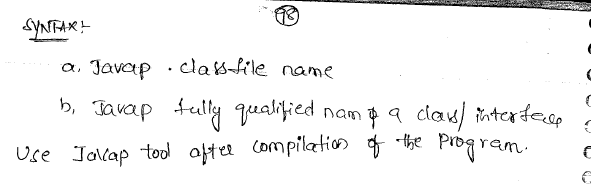 98
SYNTAX:-
a. Javap .classfile name
b, Javap fully qualified nam of a class/interface
Use Javap tool after compilation of the Program.